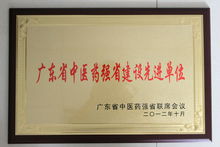 广东省中医药强省建设先进单位
广东省中医药强省联席会议
二〇一二年十月